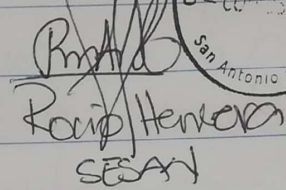 San Antonio
Rocio Herrera
SESAN